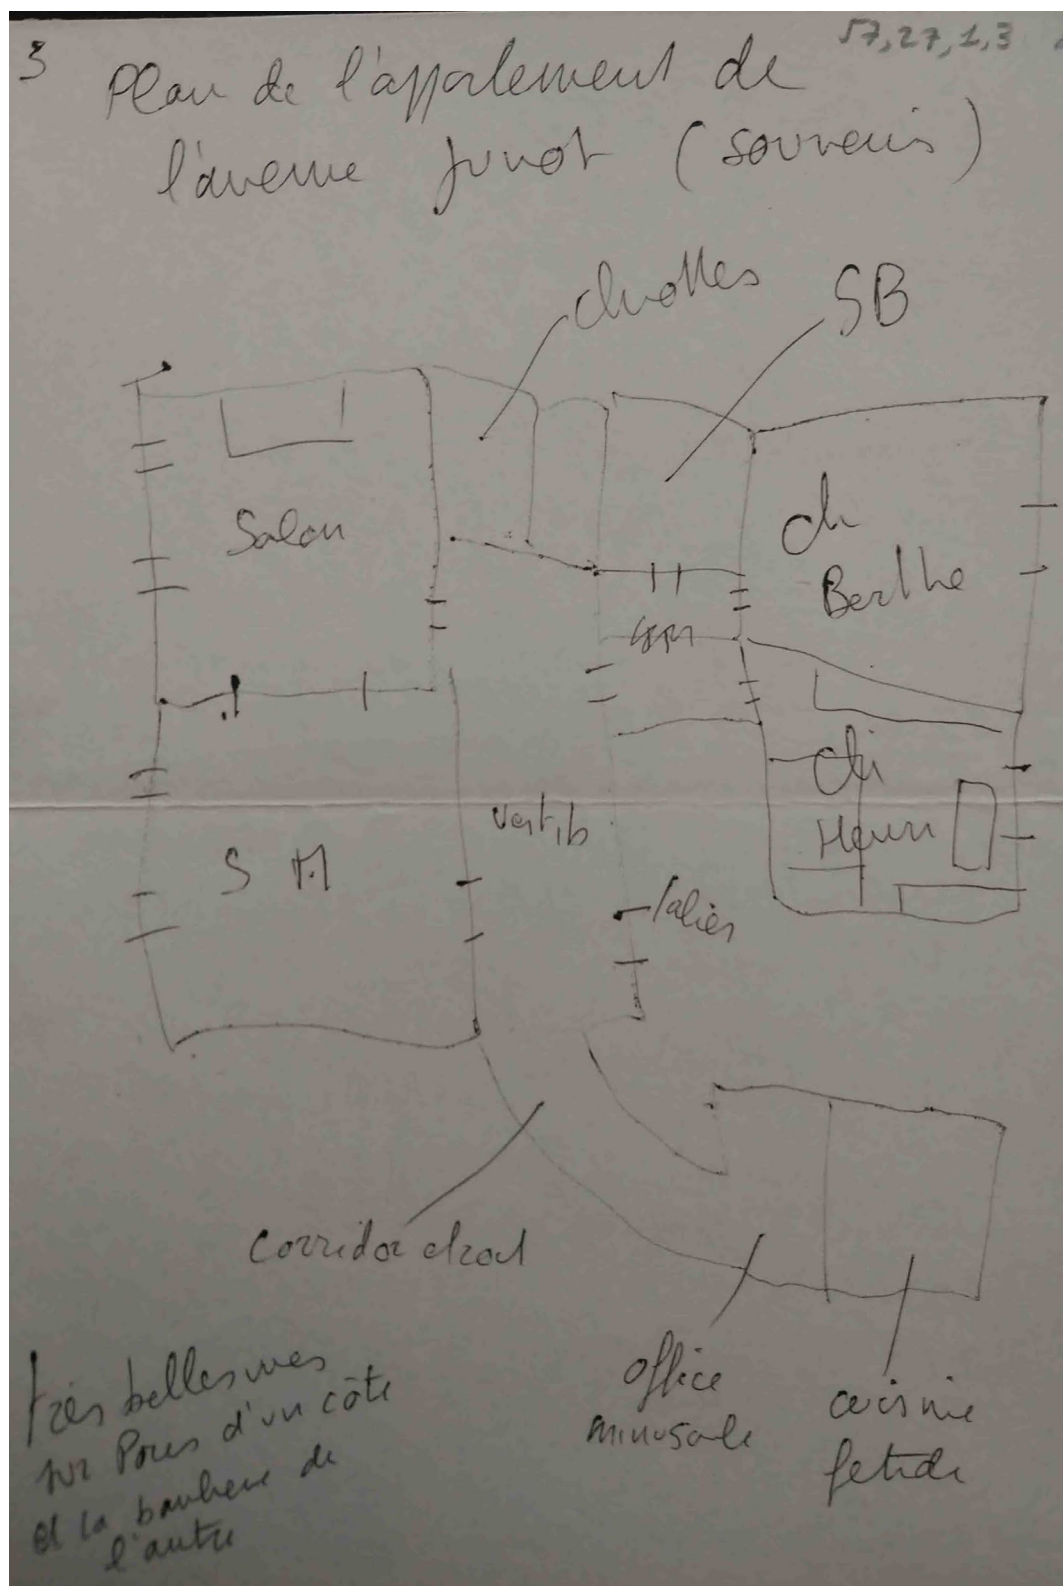 3
57,27,1,3
Plan de l'appartement de
l'avenue Junot (souvenirs)
chiottes
SB
Salon
ch
Berthe
ch
Henri
S M
vestib
palier
corridor étroit
office
minuscule
cuisine
fétide
très belles vues
sur Paris d'un côté
et la banlieue de
l'autre